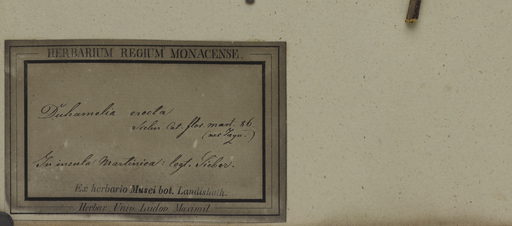 HERBARIUM REGIUM MONACENSE.
Duhamelia erecta
Sieber Cat. flor. mart. 86.
(nec Jaqu.)
In insula Martinica: legt. Sieber.
Ex herbario Musei bot. Landishuth.
Herbar. Univ. Ludov. Maximil.